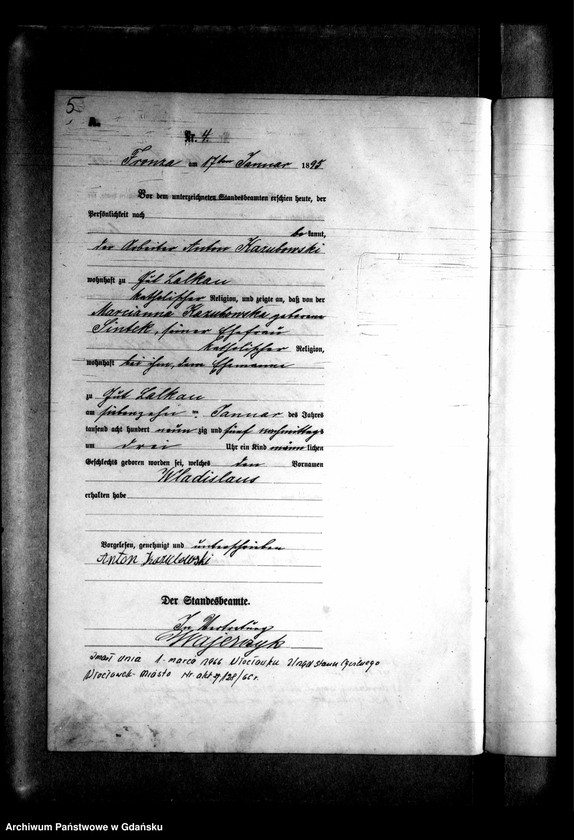 5
A.
Nr. 4.
Fronza am 17ten Januar 1895
Vor dem unterzeichneten Standesbeamten erschien heute, der
Persönlichkeit nach
be kannt,
der Arbeiter Anton Kazubowski
wohnhaft zu Gut Lalkau
katholischer Religion, und zeigte an, daß von der
Marcianna Kazubowska geborene
Pintek, seiner Ehefrau
katholischer Religion,
wohnhaft bei ihm, dem Ehemanne
zu Gut Lalkau
am siebenzehn ten Januar des Jahres
tausend acht hundert neun zig und fünf nachmittags
um drei Uhr ein Kind männ lichen
Geschlechts geboren worden sei, welches den Vornamen
Wladislaus
erhalten habe
Vorgelesen, genehmigt und unterschrieben
Anton Kazubowski
Der Standesbeamte.
In Vertretung
Majerczyk
Zmarł dnia 1. marca 1966 Włocławku Urząd Stanu Cywilnego
Włocławek-Miasto Nr. akt
Archiwum Państwowe w Gdańsku